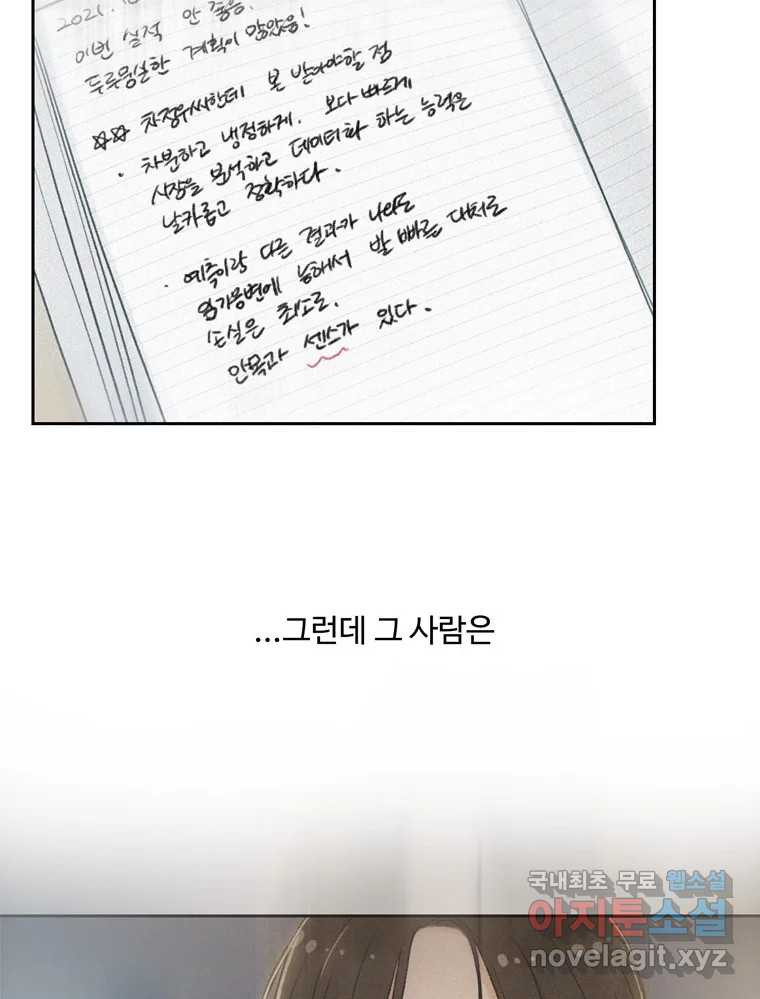 2021.
이번 실적 안 좋음.
두루뭉실한 계획이 많았음!
☆☆ 차정우씨한테 본 받아야할 점
· 차분하고 냉정하게. 보다 빠르게
시장을 분석하고 데이터화 하는 능력은
날카롭고 정확하다.
· 예측이랑 다른 결과가 나와도
임기응변에 능해서 발 빠른 대처로
손실은 최소로.
안목과 센스가 있다.
...그런데 그 사람은
국내최초 무료 웹소설
아지툰소설
novelagit.xyz